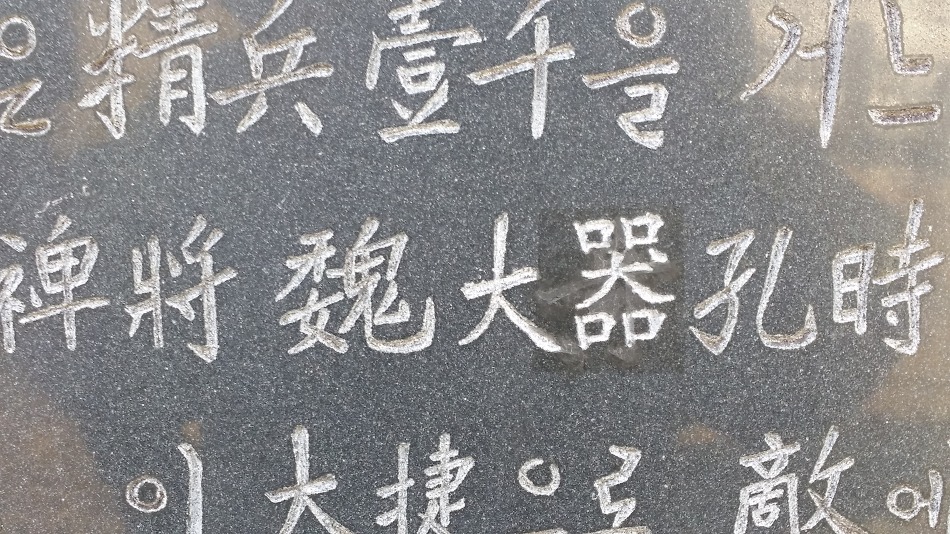 을 精兵 壹千을 거느
裨將 魏大器 孔時
이 大捷으로 敵에